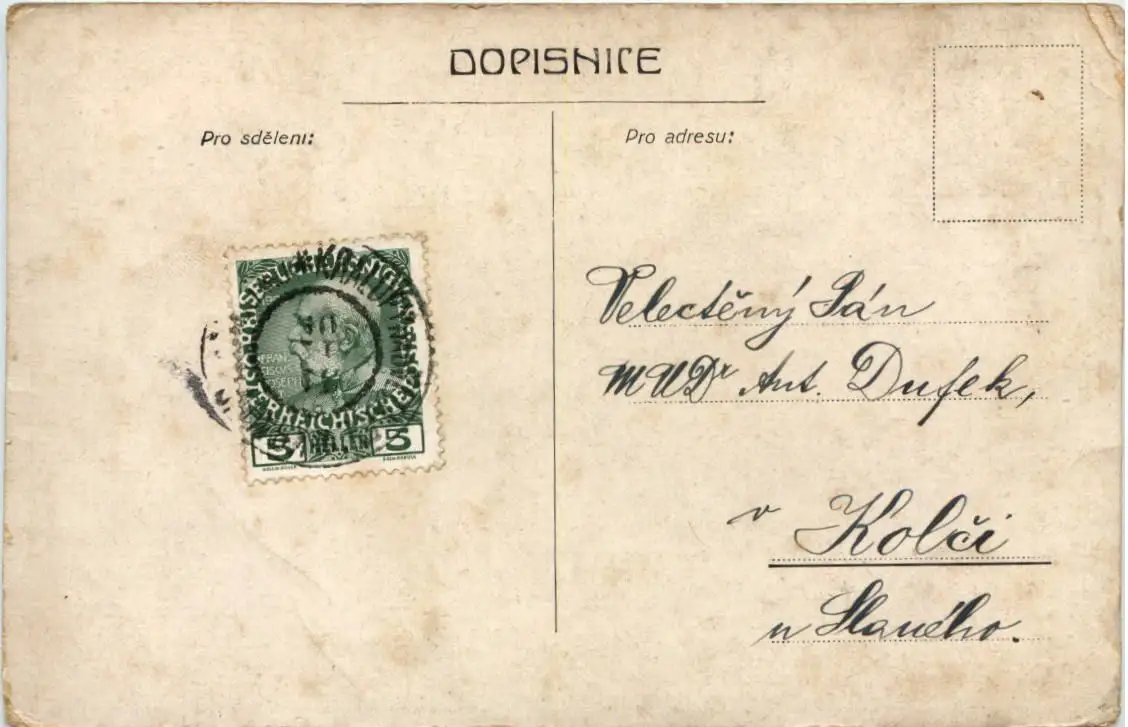 DOPISNICE
Pro sdělení:
Pro adresu:
FRAN
CISCVS
JOSEPH
5 HELLER 5
Velectěný Pán
MUDr Ant. Dufek,
v Kolči
u Slaného.